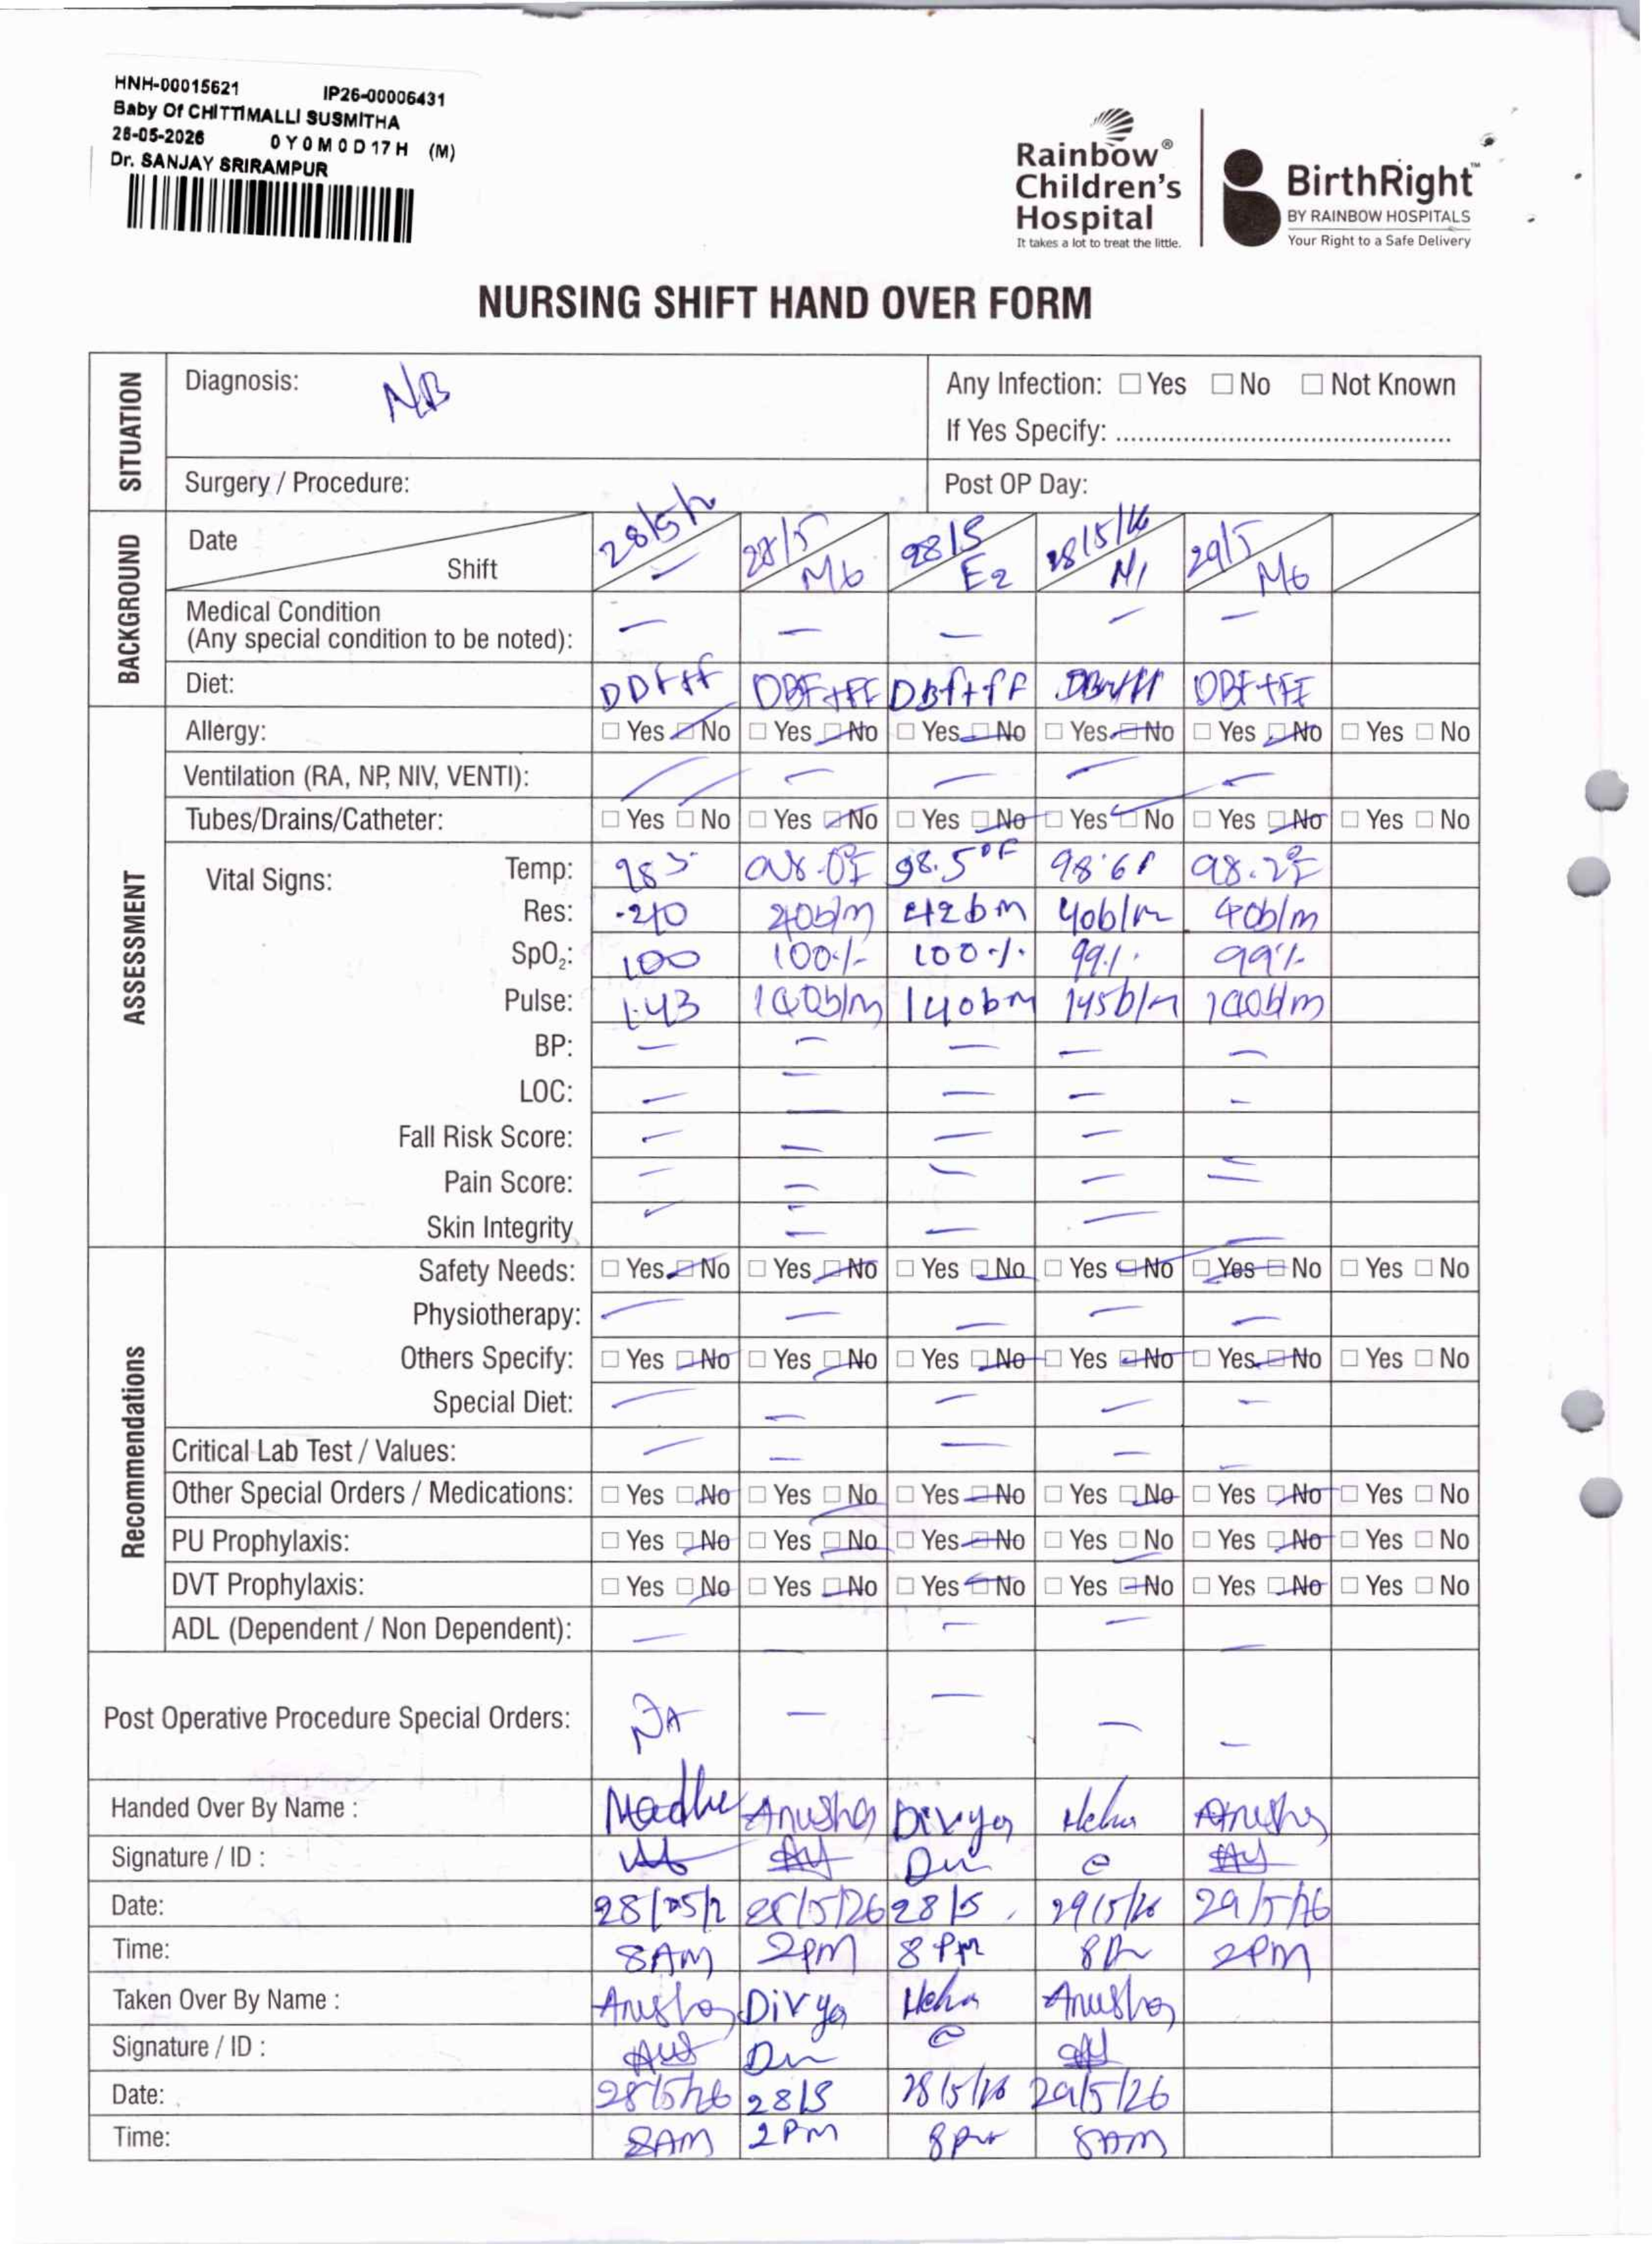 HNH-00015621 IP26-00006431
Baby Of CHITTIMALLI SUSMITHA
28-05-2026 0 Y 0 M 0 D 17 H (M)
Dr. SANJAY SRIRAMPUR
Rainbow®
Children's
Hospital
It takes a lot to treat the little.
BirthRight™
BY RAINBOW HOSPITALS
Your Right to a Safe Delivery
NURSING SHIFT HAND OVER FORM
SITUATION
Diagnosis: NB
Any Infection: □ Yes □ No □ Not Known
If Yes Specify: ............................................
Surgery / Procedure:
Post OP Day:
BACKGROUND
Date 28/5/2 28/5 28/5 28/5/26 29/5
Shift — M6 E2 N1 M6
Medical Condition
(Any special condition to be noted): — — — — —
Diet: DBF+FF DBf+fF DBF+FF
ASSESSMENT
Allergy: □ Yes □ No □ Yes □ No □ Yes □ No □ Yes □ No □ Yes □ No □ Yes □ No
Ventilation (RA, NP, NIV, VENTI): — — — —
Tubes/Drains/Catheter: □ Yes □ No □ Yes □ No □ Yes □ No □ Yes □ No □ Yes □ No □ Yes □ No
Vital Signs:
Temp: 98.0°F 98.5°F 98.6f 98.2°F
Res: 40b/m 42bm 40b/m 40b/m
SpO₂: 100 100% 100% 99% 99%
Pulse: 143 140b/m 140bm 145b/m 140b/m
BP: — — — — —
LOC: — — — — —
Fall Risk Score: — — — —
Pain Score: — — — — —
Skin Integrity — — — — —
Recommendations
Safety Needs: □ Yes □ No □ Yes □ No □ Yes □ No □ Yes □ No □ Yes □ No □ Yes □ No
Physiotherapy: — — — — —
Others Specify: □ Yes □ No □ Yes □ No □ Yes □ No □ Yes □ No □ Yes □ No □ Yes □ No
Special Diet: — — — — —
Critical Lab Test / Values: — — — — —
Other Special Orders / Medications: □ Yes □ No □ Yes □ No □ Yes □ No □ Yes □ No □ Yes □ No □ Yes □ No
PU Prophylaxis: □ Yes □ No □ Yes □ No □ Yes □ No □ Yes □ No □ Yes □ No □ Yes □ No
DVT Prophylaxis: □ Yes □ No □ Yes □ No □ Yes □ No □ Yes □ No □ Yes □ No □ Yes □ No
ADL (Dependent / Non Dependent): — — — — —
Post Operative Procedure Special Orders: NA — — — —
Handed Over By Name : Madhu Anusha Divya Neha Anusha
Signature / ID :
Date: 28/05/2 28/5/26 28/5 29/5/26 29/5/26
Time: 8AM 2pm 8 PM 2PM
Taken Over By Name : Anusha Divya Neha Anusha
Signature / ID :
Date: 28/5/26 28/5 28/5/26 29/5/26
Time: 8AM 2PM 8pm 8AM